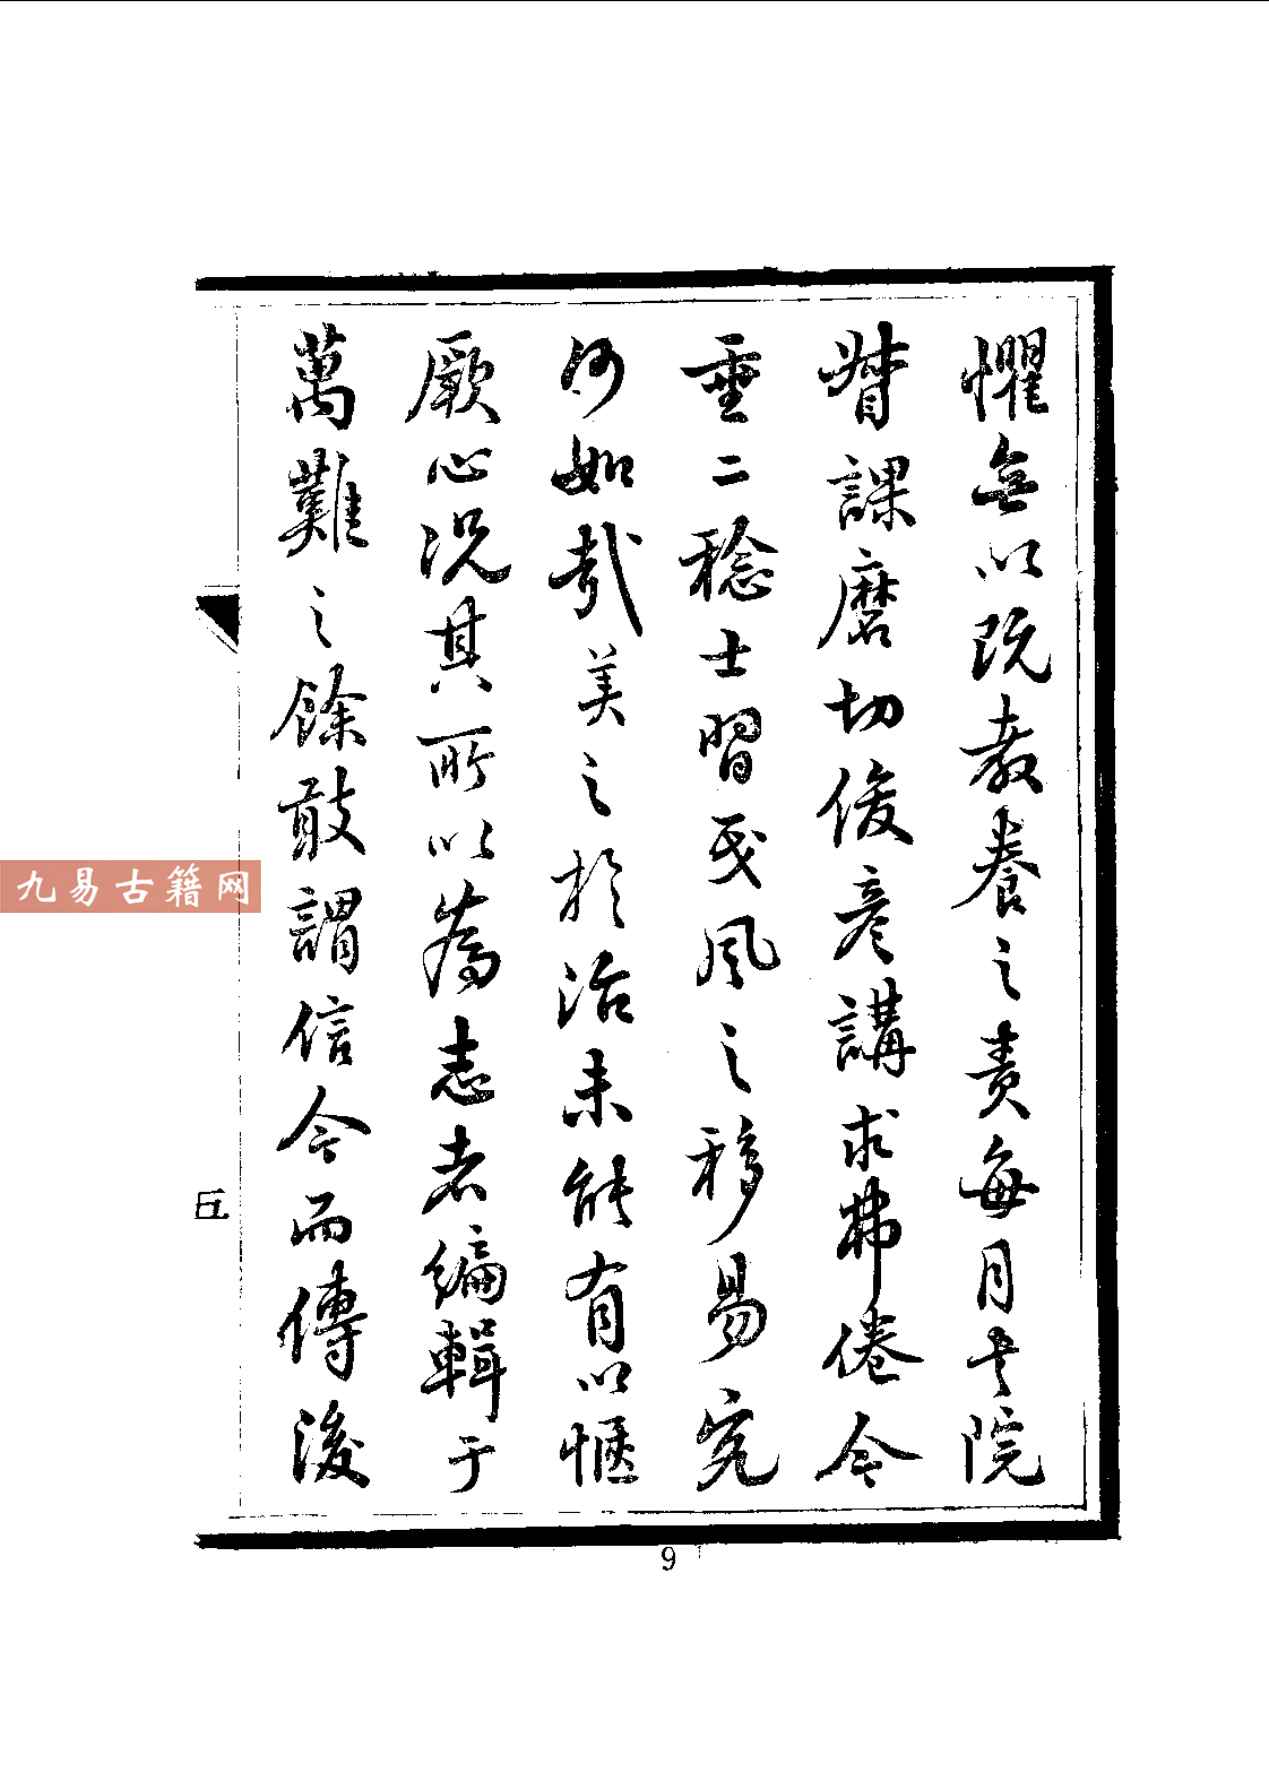 懼無以既教養之責每月書院
督課磨切俊彥講求弗倦今
垂二稔士習民風之移易究
何如哉美之於治未能有以愜
厥心況其所以為志者編輯于
萬難之餘敢謂信今而傳後
五
9
九易古籍网